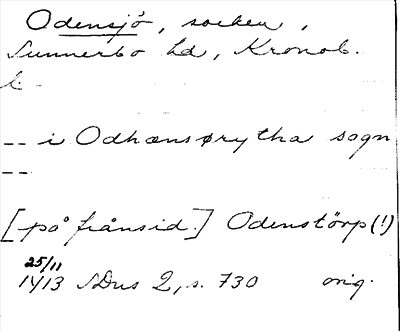 Odensjö, socken,
Sunnerbo hd, Kronob.
l.
-- i Odhænsørytha sogn
--
[på frånsid.] Odenstörp (!)
25/11
1413 SDns 2, s. 730 orig.